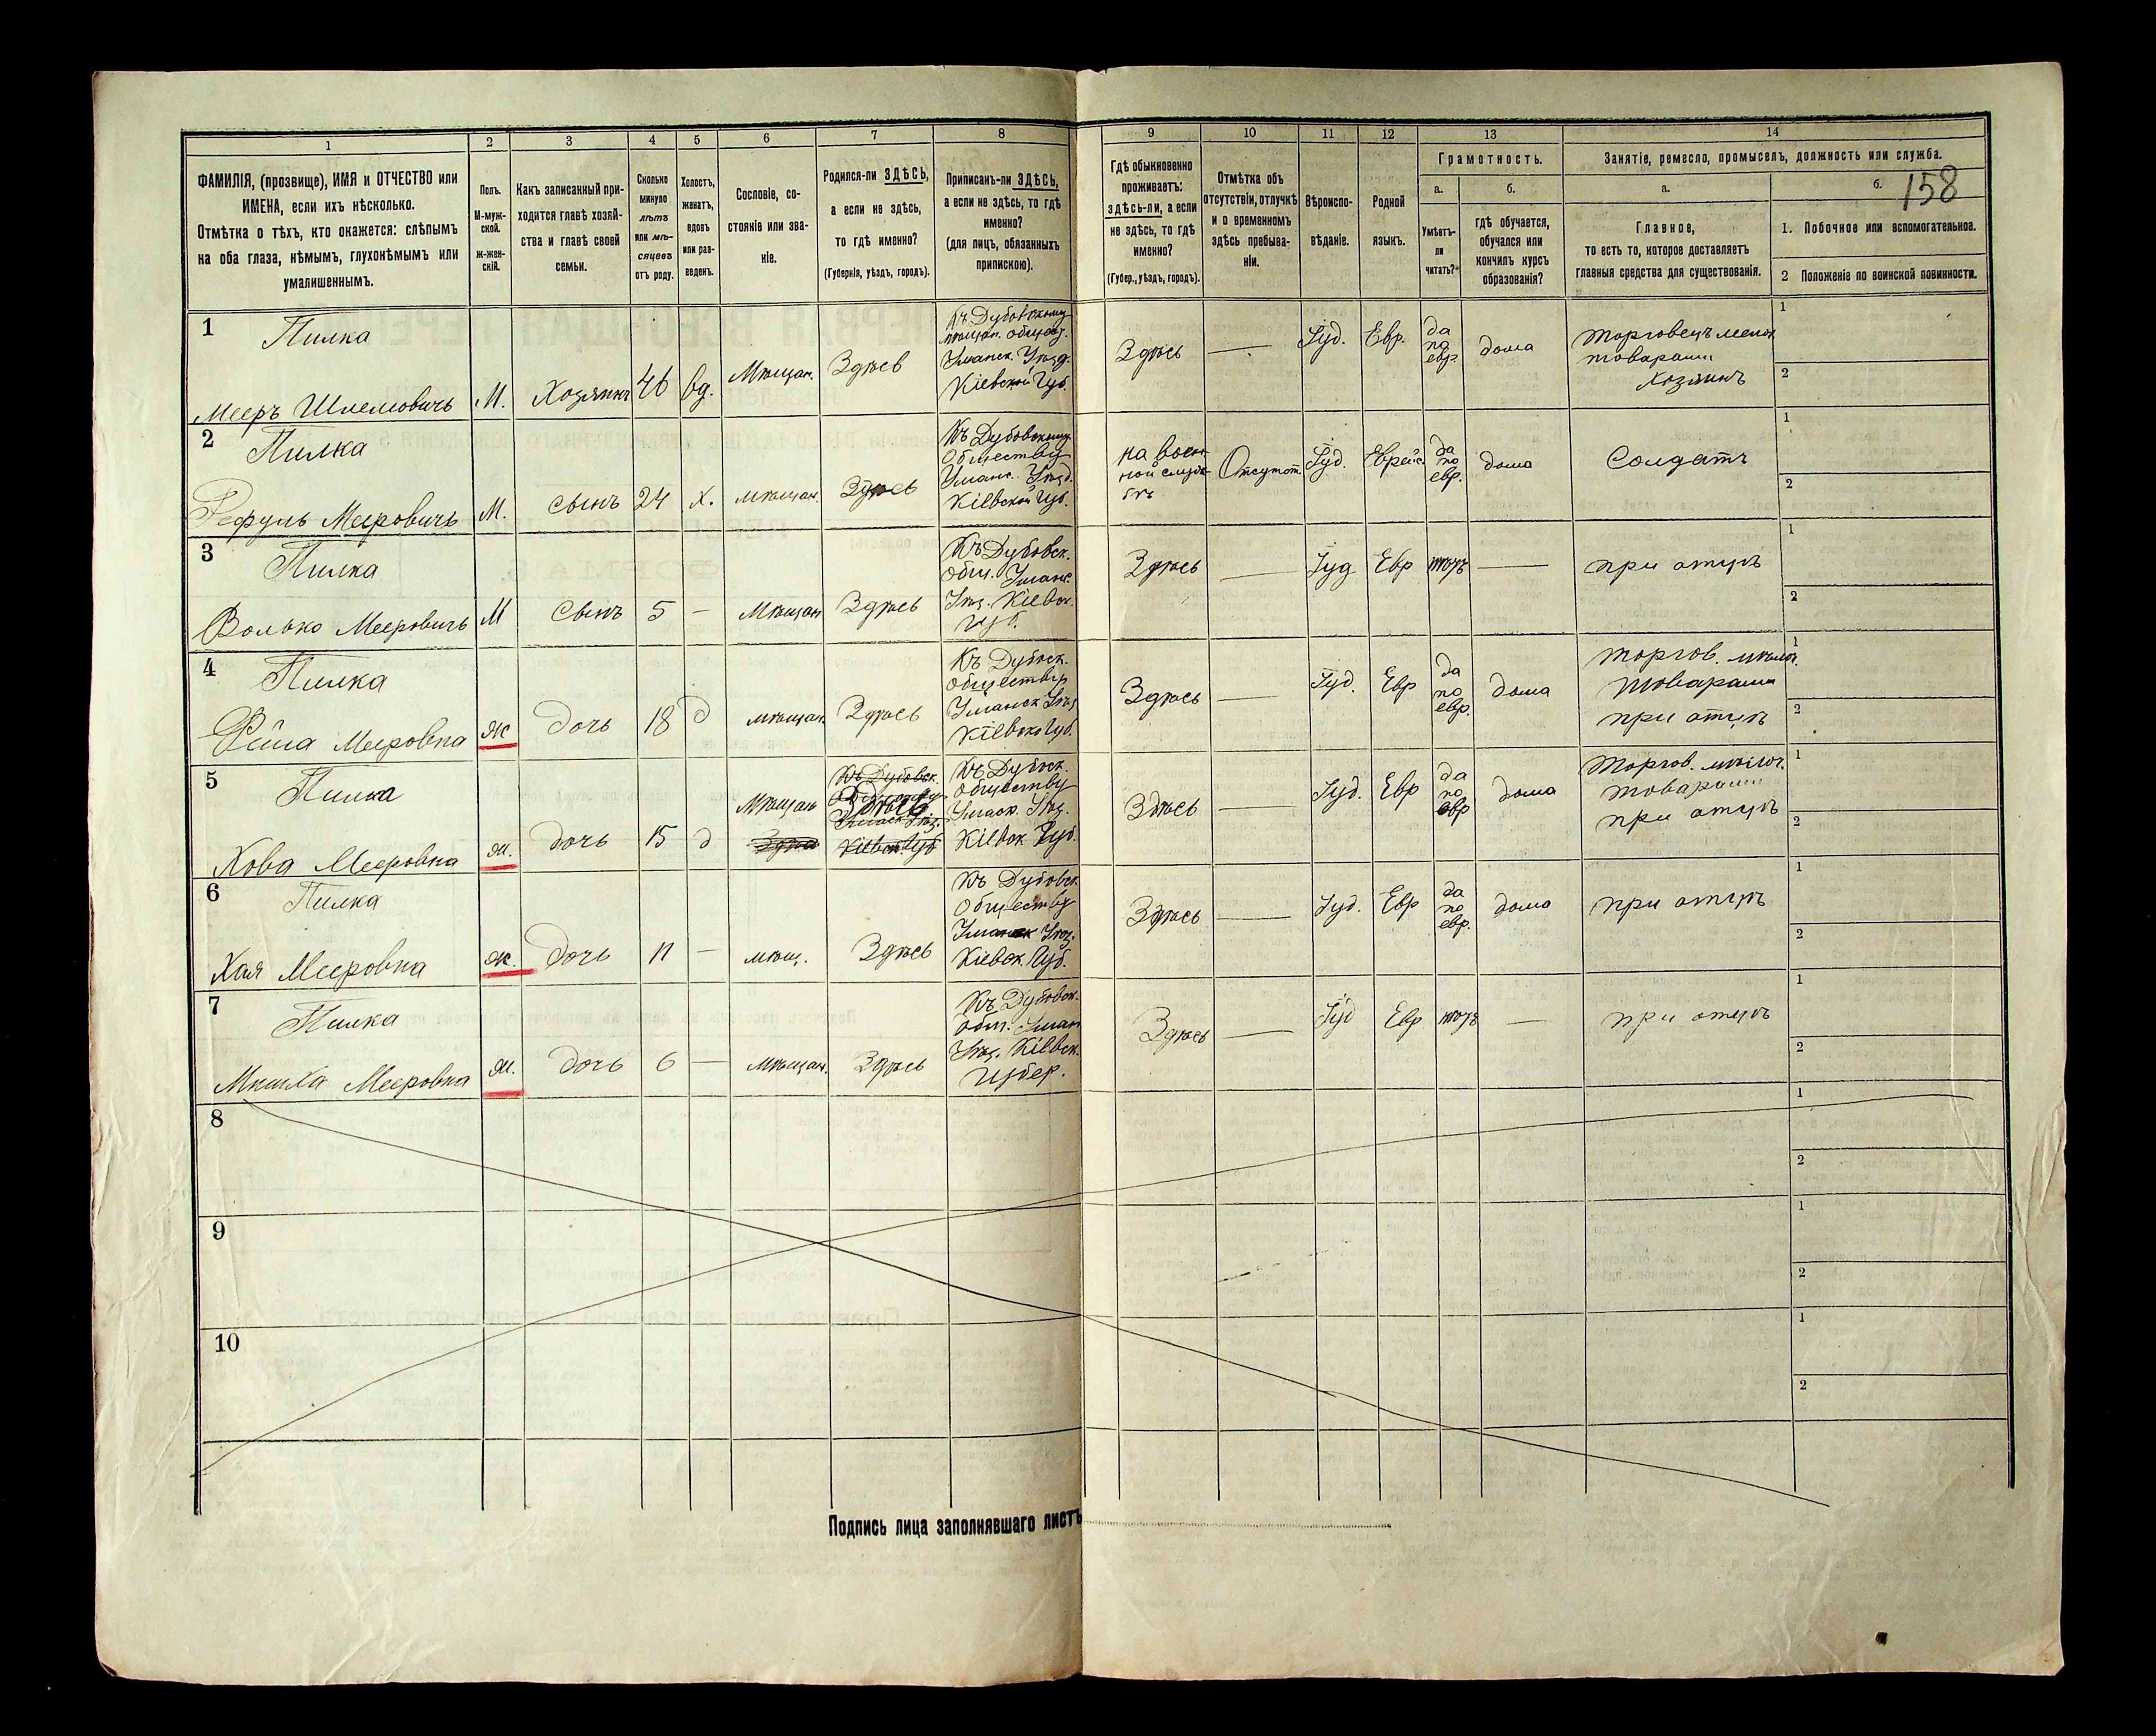 1 2 3 4 5 6 7 8 9 10 11 12 13 14
ФАМИЛІЯ, (прозвище), ИМЯ и ОТЧЕСТВО или
ИМЕНА, если ихъ нѣсколько.
Отмѣтка о тѣхъ, кто окажется: слѣпымъ
на оба глаза, нѣмымъ, глухонѣмымъ или
умалишеннымъ.
Полъ.
М-муж-
ской.
Ж-жен-
скій.
Какъ записанный при-
ходится главѣ хозяй-
ства и главѣ своей
семьи.
Сколько
минуло
лѣтъ
или мѣ-
сяцевъ
отъ роду.
Холостъ,
женатъ,
вдовъ
или раз-
веденъ.
Сословіе, со-
стояніе или зва-
ніе.
Родился-ли ЗДѢСЬ,
а если не здѣсь,
то гдѣ именно?
(Губернія, уѣздъ, городъ).
Приписанъ-ли ЗДѢСЬ,
а если не здѣсь, то гдѣ
именно?
(для лицъ, обязанныхъ
припискою).
Гдѣ обыкновенно
проживаетъ:
здѣсь-ли, а если
не здѣсь, то гдѣ
именно?
(Губер., уѣздъ, городъ).
Отмѣтка объ
отсутствіи, отлучкѣ
и о временномъ
здѣсь пребыва-
ніи.
Вѣроиспо-
вѣданіе.
Родной
языкъ.
Грамотность.
а.
Умѣетъ-
ли
читать?
б.
гдѣ обучается,
обучался или
кончилъ курсъ
образованія?
Занятіе, ремесло, промыселъ, должность или служба.
а.
Главное,
то есть то, которое доставляетъ
главныя средства для существованія.
б.
158
1. Побочное или вспомогательное.
2 Положеніе по воинской повинности.
1
Пилка
Мееръ Шлемовичъ
М.
Хозяинъ
46
вд.
Мѣщан.
Здѣсь
Къ Дубовскому
мѣщан. общест.
Уманск. Уѣзд.
Кіевской Губ.
Здѣсь
Іуд.
Евр.
да
по
евр.
дома
Торговецъ мелоч
товарами
Хозяинъ
1
2
2
Пилка
Мееровичъ
М.
сынъ
24
х.
мѣщан.
Здѣсь
Къ Дубовскому
Обществу
Уманс. Уѣзд.
Кіевской Губ.
на воен
ной служ
бѣ
Отсутст.
Іуд.
Еврейс.
да
по
евр.
дома
Солдатъ
1
2
3
Пилка
Волько Мееровичъ
М
сынъ
5
Мѣщан
Здѣсь
Къ Дубовск.
Общ. Уманс.
Уѣз. Кіевск.
Губ.
Здѣсь
Іуд
Евр
при отцѣ
1
2
4
Пилка
Мееровна
Ж
дочь
18
д
мѣщан.
Здѣсь
Къ Дубовск.
обществу
Уманск Уѣз
Кіевской Губ.
Здѣсь
Іуд.
Евр
да
по
евр.
дома
Торгов. мѣлоч.
товарами
при отцѣ
1
2
5
Пилка
Хова Мееровна
ж.
дочь
15
д
Мѣщан
Здѣсь.
Кіевск. Губ
Къ Дубовск.
Обществу
Уманск. Уѣз.
Кіевск. Губ.
Здѣсь
Іуд.
Евр
да
по
евр
дома
Торгов. мѣлоч.
товарами
при отцѣ
1
2
6
Пилка
Хая Мееровна
ж.
дочь
11
мѣщ.
Здѣсь
Къ Дубовск.
Обществу
Уманск Уѣз.
Кіевск. Губ.
Здѣсь
Іуд.
Евр
да
по
евр.
дома
при отцѣ
1
2
7
Пилка
Мееровна
ж.
дочь
6
Мѣщан.
Здѣсь
Къ Дубовск.
Общ. Уман
Уѣз. Кіевск.
Губер.
Здѣсь
Іуд
Евр
при отцѣ
1
2
8
1
2
9
1
2
10
1
2
Подпись лица заполнявшаго листъ